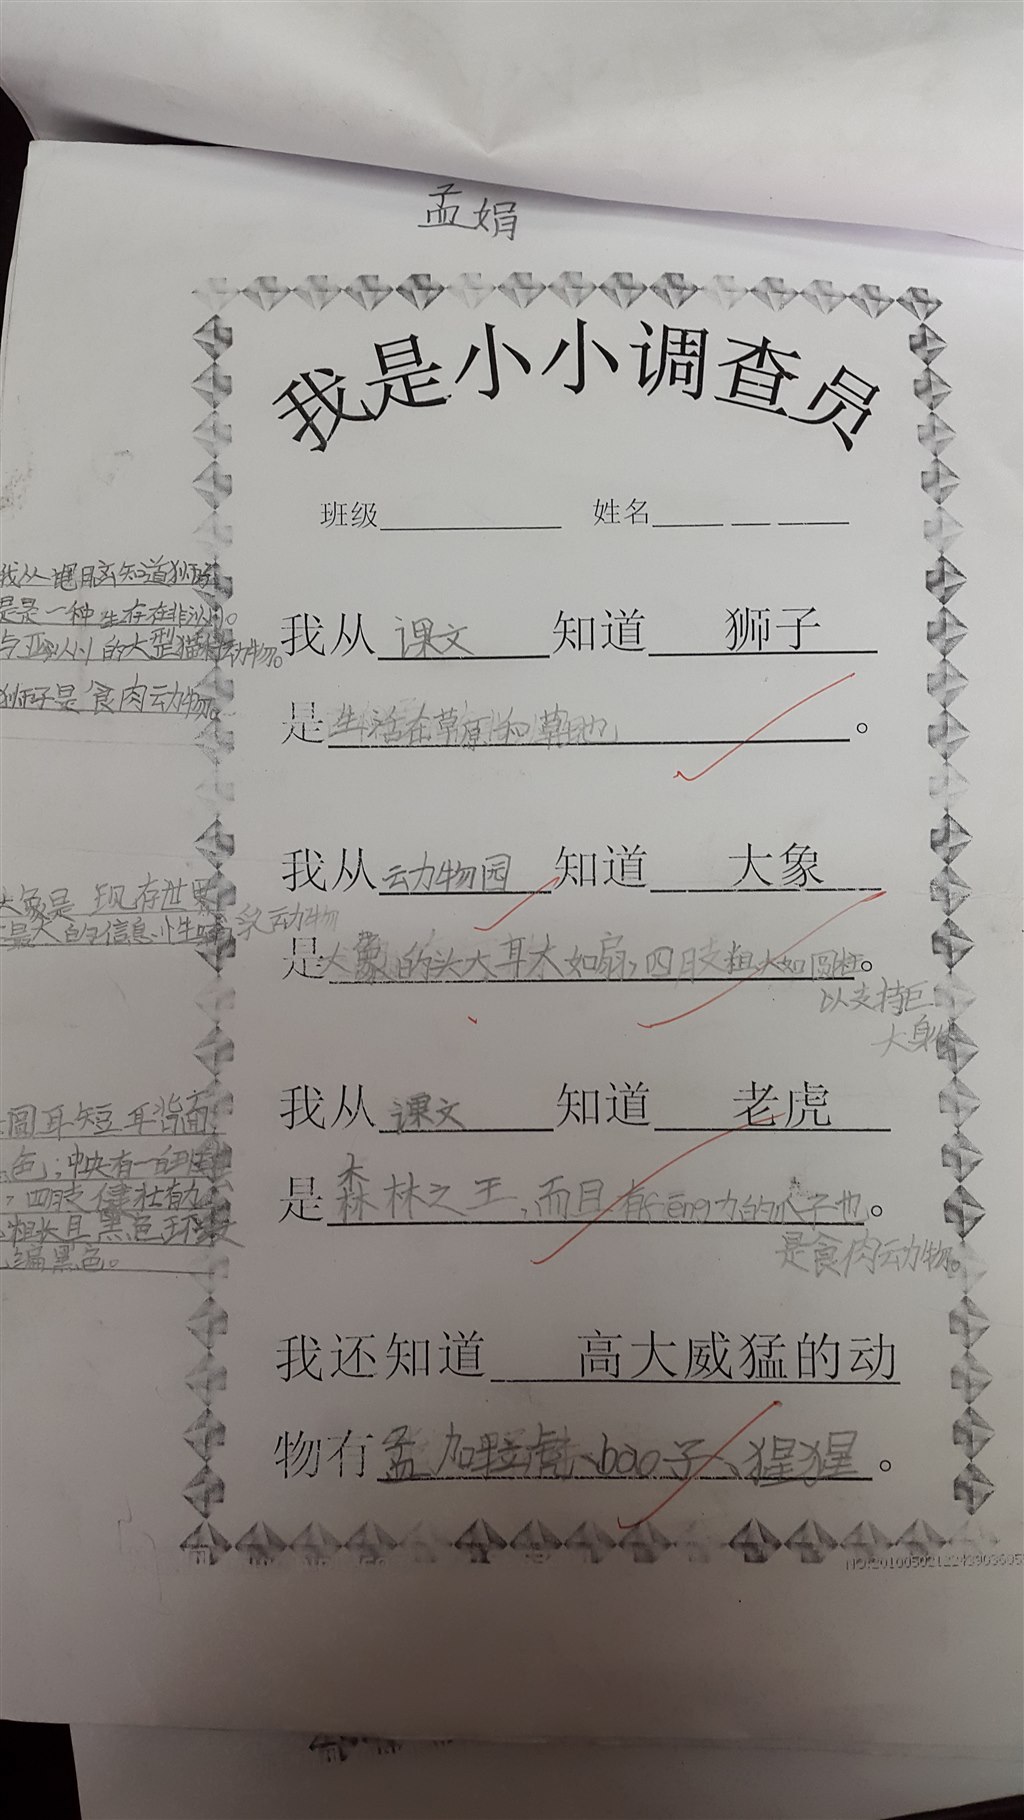 孟娟
我是小小调查员
班级 姓名
我从电脑知道狮子
是是一种生存在非洲。
与亚洲的大型猫科动物。
狮子是食肉动物。
我从 课文 知道 狮子
是生活在草原和草地。
我从动物园 知道 大象
大象是现存世界
最大的 动物
是大象的头大耳大如扇,四肢粗大如圆柱。
以支持巨
大身体
我从 课文 知道 老虎
圆耳短耳背面
色;中央有一白斑
,四肢健壮有力
粗长且黑色环纹
黑色。
是森林之王,而且有fēng力的爪子也。
是食肉动物。
我还知道 高大威猛的动
物有孟加拉虎、bao子、猩猩。